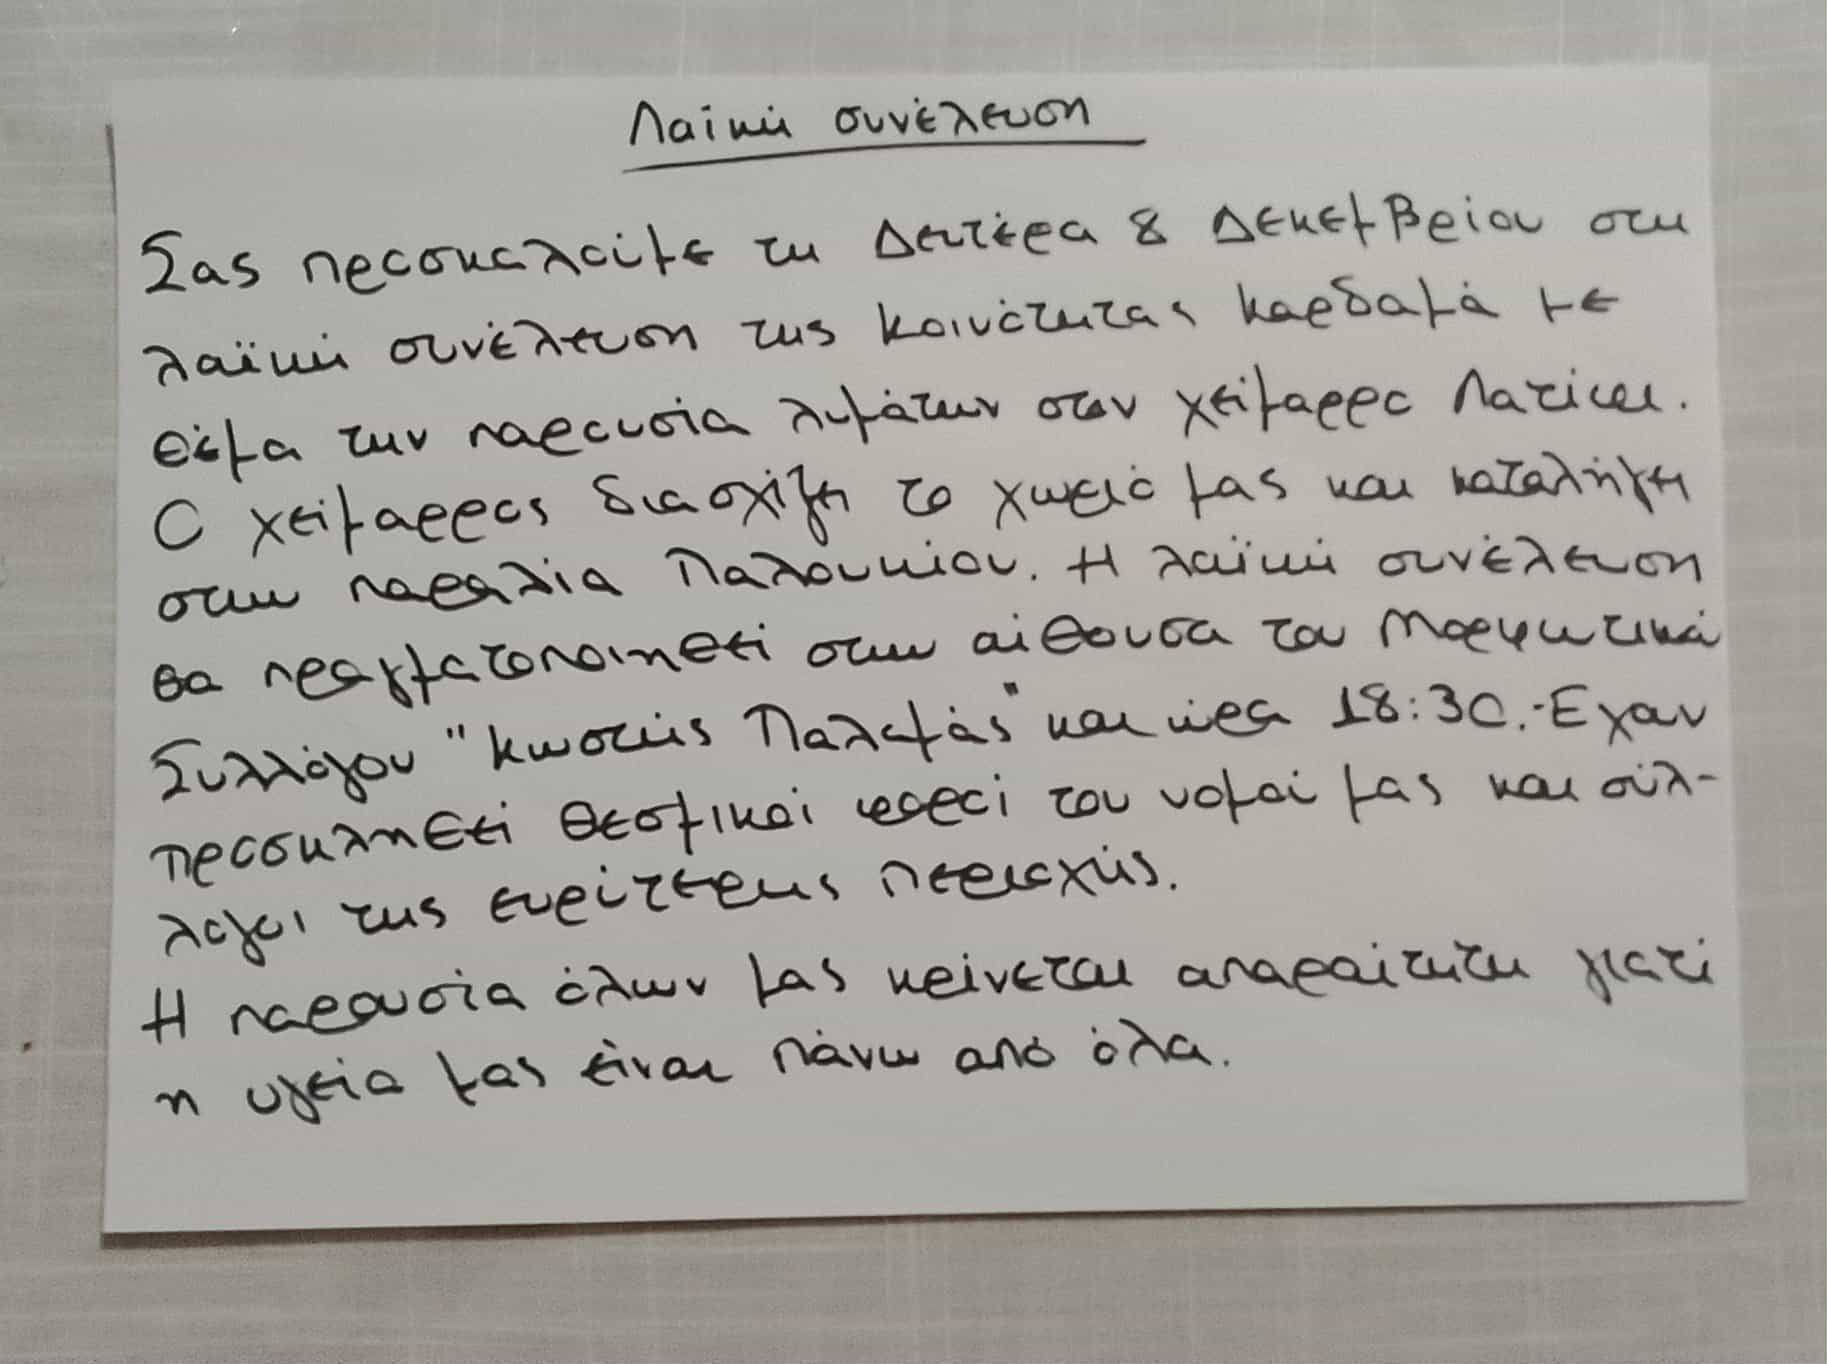 Λαϊκή συνέλευση
Σας προσκαλούμε τη Δευτέρα 8 Δεκεμβρίου στη
λαϊκή συνέλευση της Κοινότητας Καρδαμά με
θέμα την παρουσία λυμάτων στον χείμαρρο Λατίκι.
Ο χείμαρρος διασχίζη το χωριό μας και καταλήγει
στην παραλία Παλουκίου. Η λαϊκή συνέλευση
θα πραγματοποιηθεί στην αίθουσα του Μορφωτικού
Συλλόγου "Κωστής Παλαμάς" και ώρα 18:30.-Εχουν
προσκληθεί θεσμικοί φορεί του νομού μας και σύλ-
λογοι της ευρύτερης περιοχής.
Η παρουσία όλων μας κρίνεται απαραίτητη γιατί
η υγεία μας είναι πάνω από όλα.